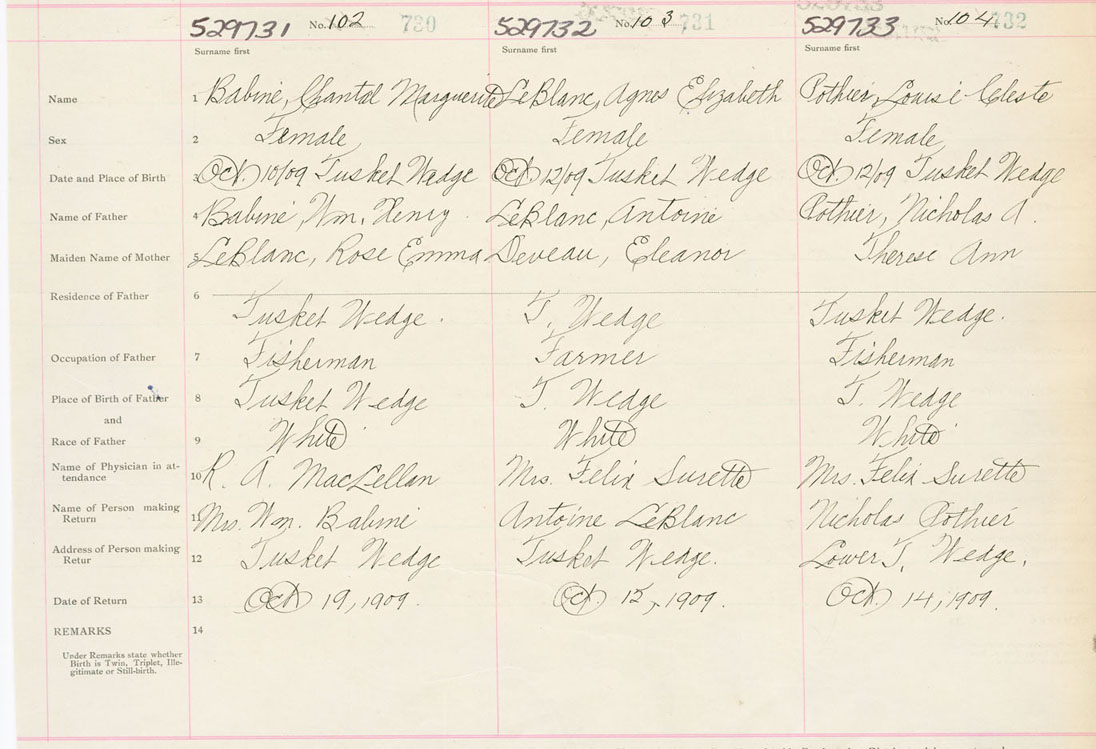 529731 No. 102 730 529732 No. 103 731 529733 No. 104 732
Surname first Surname first Surname first
Name 1 Babine, Chantal Marguerite LeBlanc, Agnes Elizabeth Pothier, Louise Celeste
Sex 2 Female Female Female
Date and Place of Birth 3 Oct. 10/09 Tusket Wedge Oct. 12/09 Tusket Wedge Oct. 12/09 Tusket Wedge
Name of Father 4 Babine, Wm. Henry. LeBlanc, Antoine Pothier, Nicholas A.
Maiden Name of Mother 5 LeBlanc, Rose Emma Deveau, Eleanor Therese Ann
Residence of Father 6
Tusket Wedge. T. Wedge Tusket Wedge.
Occupation of Father 7 Fisherman Farmer Fisherman
Place of Birth of Father 8 Tusket Wedge T. Wedge T. Wedge
and
Race of Father 9 White White White
Name of Physician in at-
tendance 10 R. A. MacLellan Mrs. Felix Surette Mrs. Felix Surette
Name of Person making
Return 11 Mrs. Wm. Babine Antoine LeBlanc Nicholas Pothier
Address of Person making
Retur 12 Tusket Wedge Tusket Wedge. Lower T. Wedge.
Date of Return 13 Oct. 19, 1909. Oct. 15, 1909. Oct. 14, 1909.
REMARKS 14
Under Remarks state whether
Birth is Twin, Triplet, Ille-
gitimate or Still-birth.